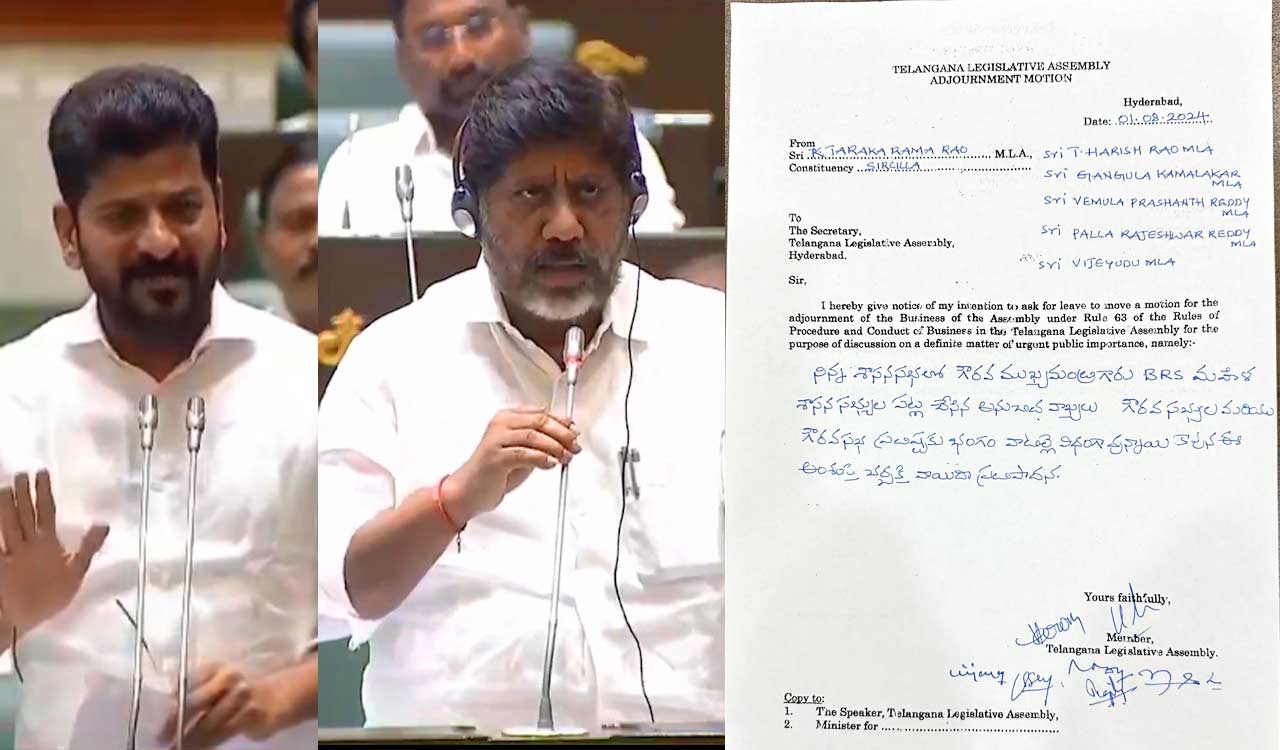 TELANGANA LEGISLATIVE ASSEMBLY
ADJOURNMENT MOTION
Hyderabad,
Date: 01.08.2024
From
Sri K TARAKA RAMA RAO M.L.A.,
Constituency SIRCILLA
Sri T. HARISH RAO MLA
Sri GANGULA KAMALAKAR MLA
Sri VEMULA PRASHANTH REDDY MLA
Sri PALLA RAJESHWAR REDDY MLA
Sri VIJEYUDU MLA
To
The Secretary,
Telangana Legislative Assembly,
Hyderabad.
Sir,
I hereby give notice of my intention to ask for leave to move a motion for the
adjournment of the Business of the Assembly under Rule 63 of the Rules of
Procedure and Conduct of Business in the Telangana Legislative Assembly for the
purpose of discussion on a definite matter of urgent public importance, namely:-
నిన్న శాసనసభలో గౌరవ ముఖ్యమంత్రిగారు BRS మహిళ
శాసన సభ్యుల పట్ల చేసిన అనుచిత వాఖ్యలు గౌరవ సభ్యుల మరియు
గౌరవసభ ప్రతిష్టకు భంగం వాటిల్లె విధంగా వున్నాయి కావున ఈ
అంశంపై చర్చకై వాయిదా ప్రతిపాదన.
Yours faithfully,
Member,
Telangana Legislative Assembly.
Copy to:
1. The Speaker, Telangana Legislative Assembly,
2. Minister for